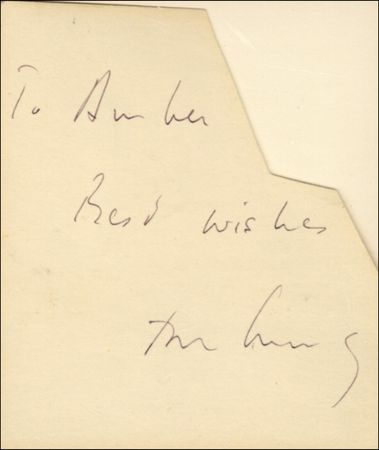 To Amber
Best wishes